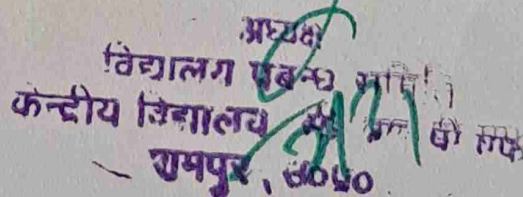 अध्यक्ष
विद्यालय प्रबन्ध समिति
केन्द्रीय विद्यालय
रामपुर, उ०प्र०